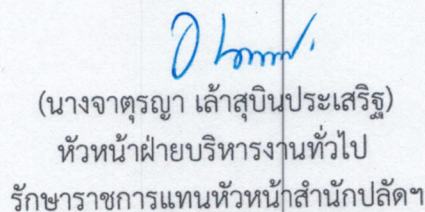 (นางจาตุรญา เล้าสุบินประเสริฐ)
หัวหน้าฝ่ายบริหารงานทั่วไป
รักษาราชการแทนหัวหน้าสำนักปลัดฯ